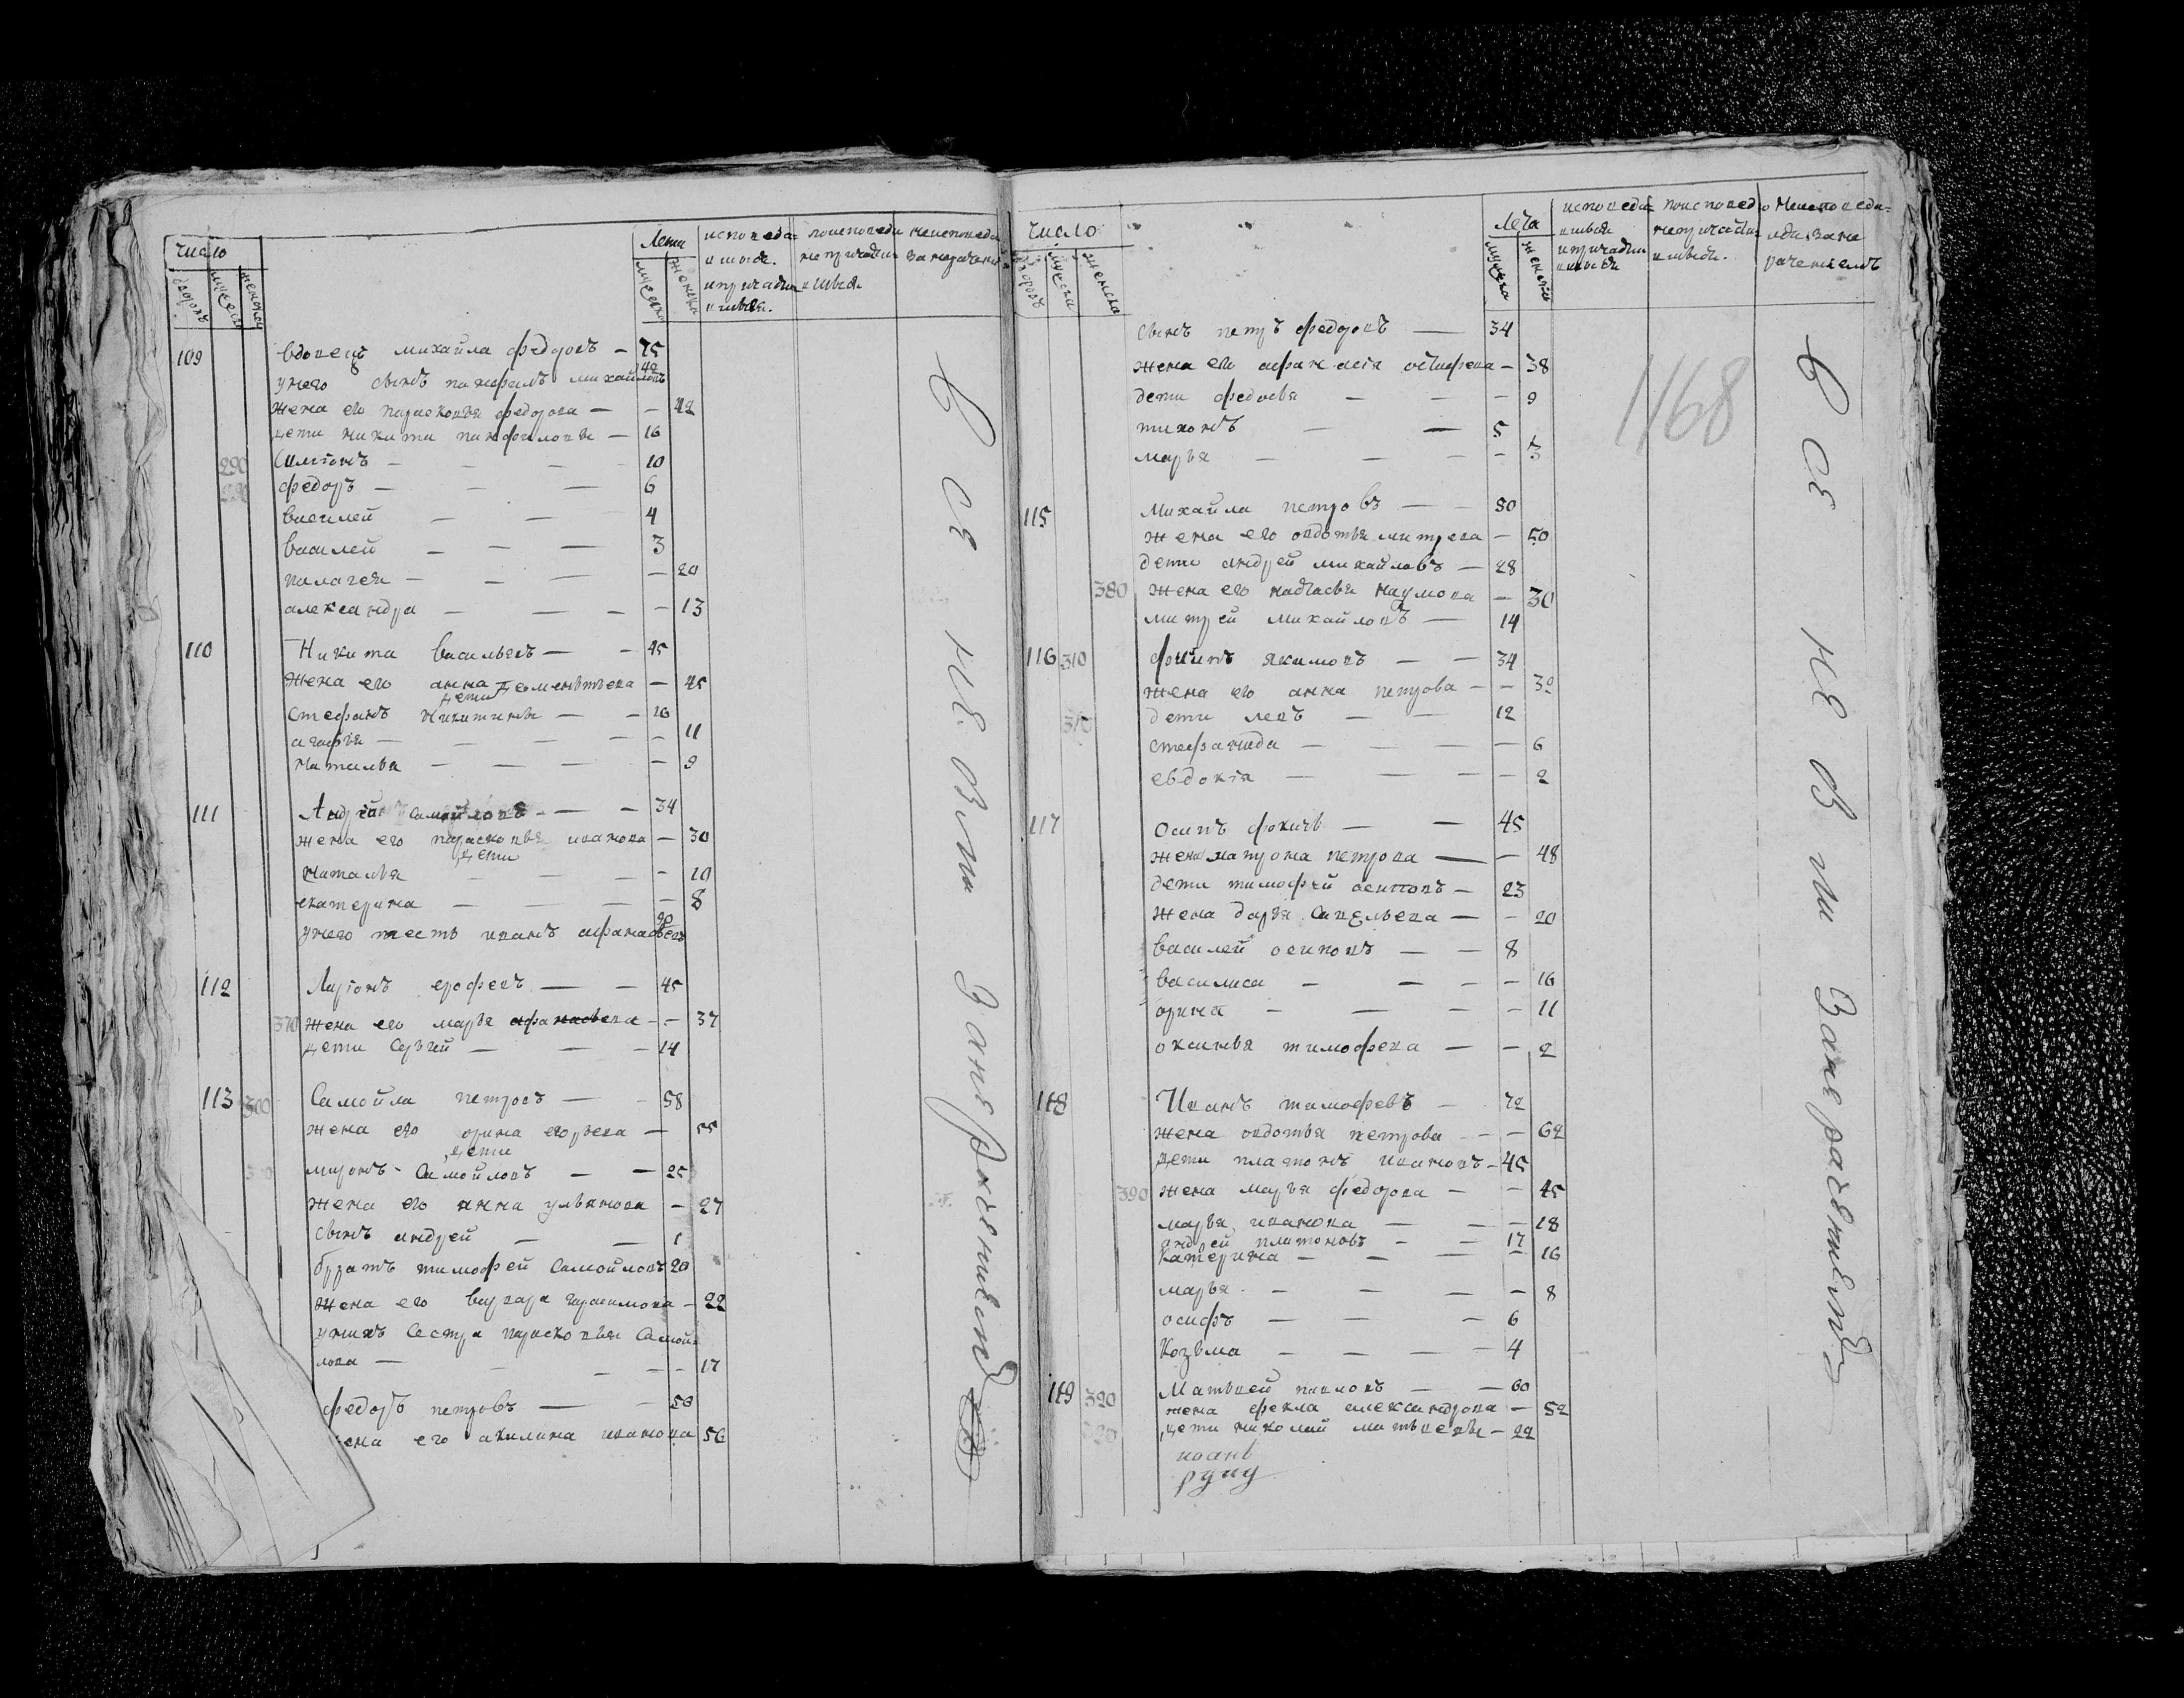 число
дворовъ мужеска женска
Лета
мужеска женска
исповеда
вшися.
и причасти
вшися.
поисповеди
непричасти
вшися
неисповеда
за нерачениемъ
109 вдовецъ михайла федоровъ — 75
унего сынъ панфилъ михайловъ 42
жена его парасковья федорова — — 42
дети никита панфиловы — 16
290 Симіонъ — — — 10
федоръ — — — 6
василей — — 4
василей — — — 3
палагея — — — — 20
александра — — — — 13
110 Никита васильевъ — — 45
жена его анна дементьева — 45
дети
стефанъ Никитины — — 16
агафья — — — — — 11
наталья — — — — 9
111 Андрей самойловъ — — 34
жена его парасковья иванова — 30
дети
наталья — — — — 10
екатерина — — — — 8
унего тесть иванъ афанасьевъ 90
112 Ларіонъ ерофеевъ — — 45
370 жена его марья афанасьева — — 37
дети Сергей — — — 14
113 300 Самойла петровъ — — 58
жена его орина егорьева — 55
дети
миронъ — Самойловъ — — 25
жена его анна ульянова — 27
сынъ андрей — — 1
братъ тимофей Самойловъ 20
жена его варвара герасимова — 22
унихъ Сестра парасковья Самой
лова — — — — 17
федоръ петровъ — — 50
жена его акилина иванова 56
всі неѡти за нерачениемъ
число
дворовъ мужеска женска
Лета
мужеска женска
исповеда
вшися
и причасти
вшися
поисповеди
непричасти
вшися.
Неисповеда
лись за не
рачениемъ
сынъ петръ федоровъ — 34
жена его афанасія остафева — 38
дети федосья — — — 9
тихонъ — — 5
марья — — — — 3
115 Михайла петровъ — — 50
жена его овдотья митрева — 50
дети андрей михайловъ — 28
380 жена его настасья наумова — 30
митрей михайловъ — 14
116 310 филипъ якимовъ — — 34
жена его анна петрова — — 30
дети левъ — — 12
стефанида — — — — 6
евдокія — — — — 2
117 Осипъ фокичъ — — 45
жена матрона петрова — — 48
дети тимофей осиповъ — 23
жена дарья Савельева — — 20
василей осиповъ — — 8
василиса — — — — 16
орина — — — — 11
оксинья тимофева — — 2
118 Иванъ тимофевъ — 72
жена овдотья петрова — — 62
дети платонъ ивановъ — 45
390 жена марья федорова — — 45
марья иванова — — — 18
андрей платоновъ — — 17
катерина — — — — 16
марья — — — — 8
осифъ — — — 6
Козьма — — — — 4
119 320 Матвей павловъ — — 60
жена фекла александрова — 52
дети николай матвеевы — 22
иоанъ
руку
1168